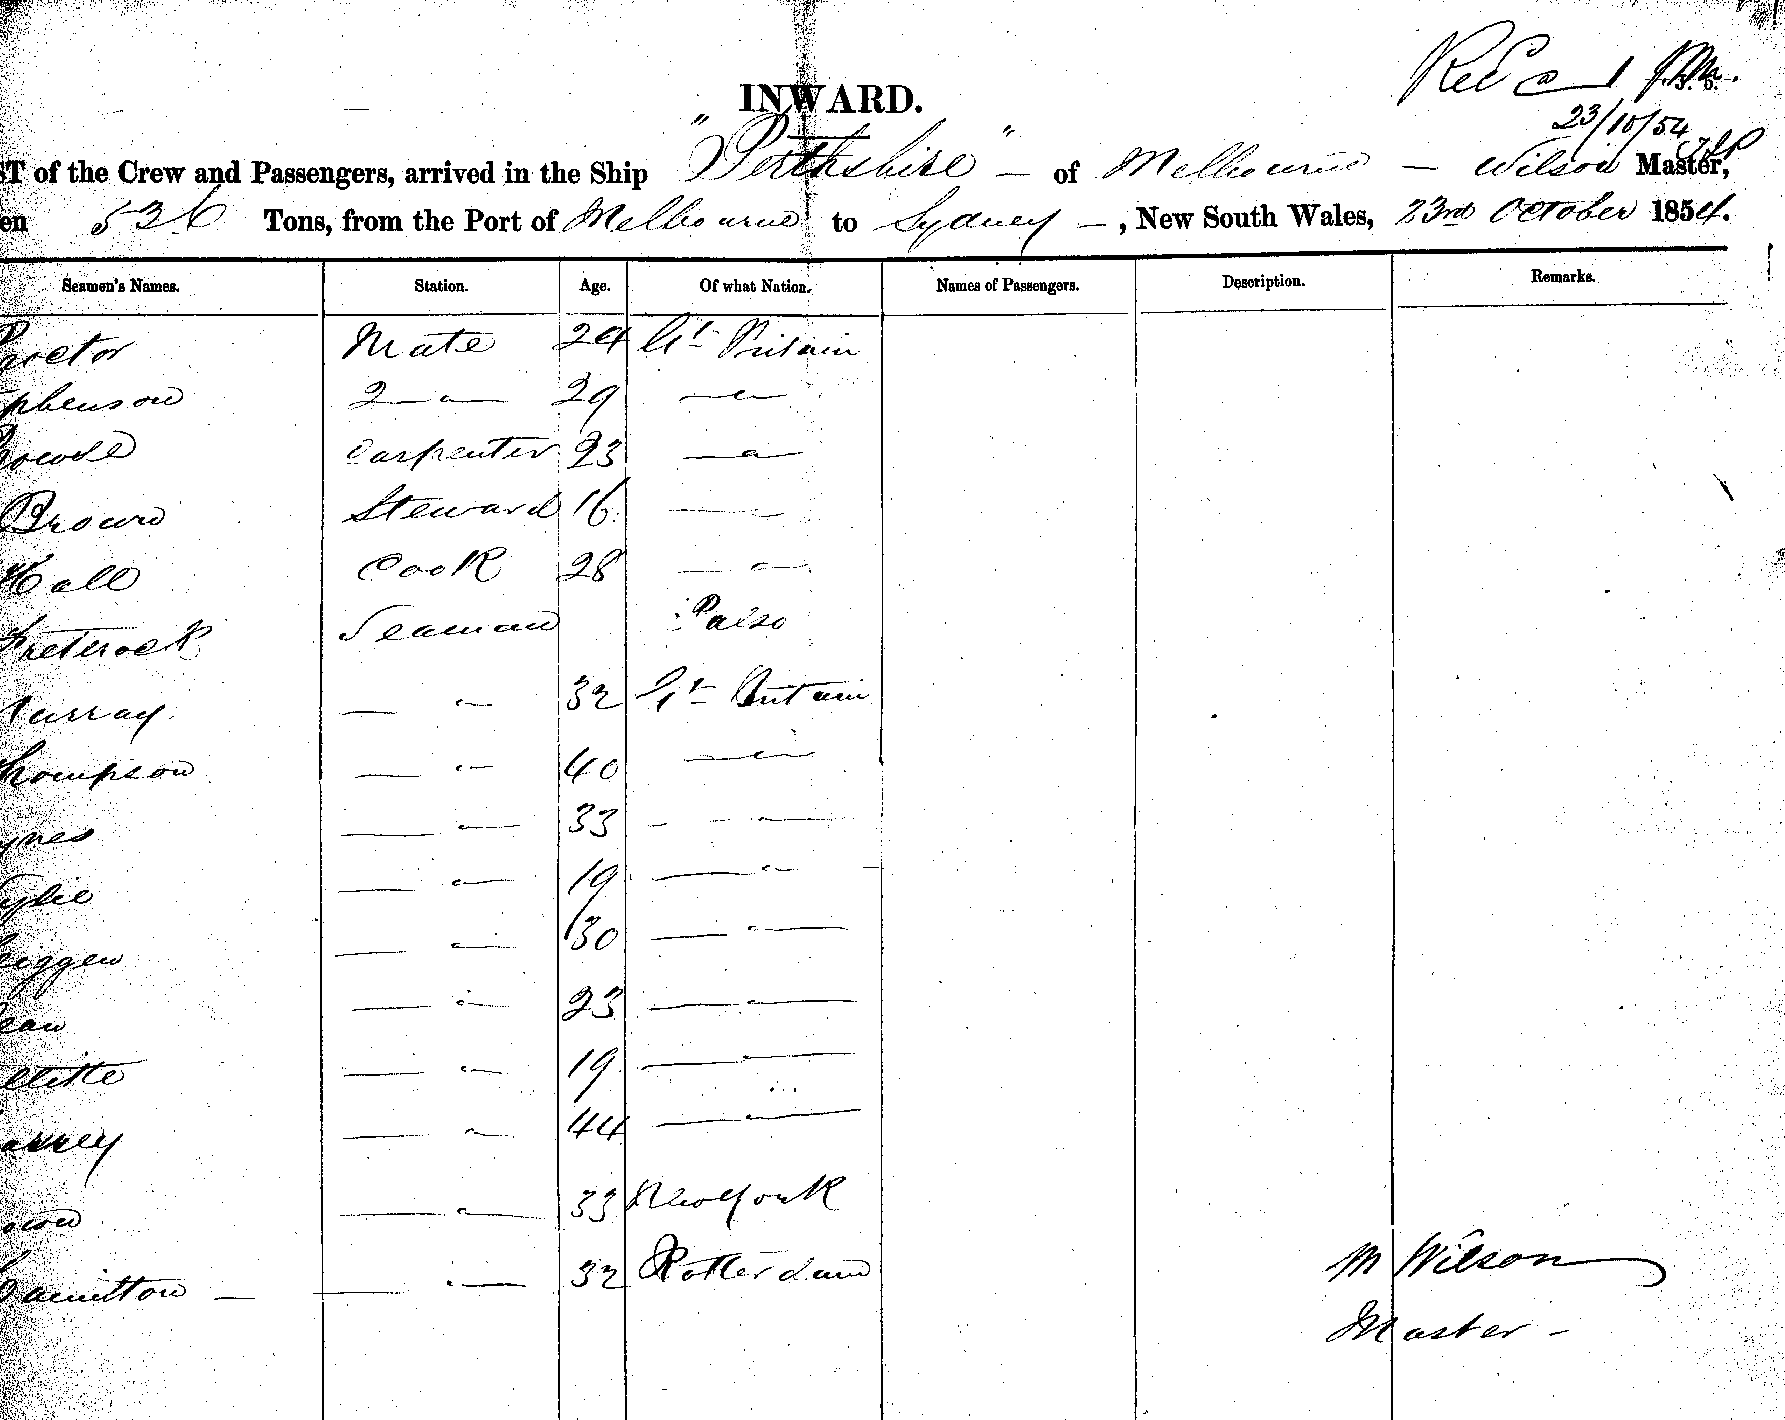 Recd 1 P.M.
23/10/54
INWARD.
ST of the Crew and Passengers, arrived in the Ship "Perthshire" — of Melbourne — Wilson Master,
en 536 Tons, from the Port of Melbourne to Sydney —, New South Wales, 23rd October 1854.
Seamen's Names. Station. Age. Of what Nation. Names of Passengers. Description. Remarks.
Mate 24 Gt Britain
phenson 2 — " — 29 — " —
Carpenter 23 — " —
Brown Steward 16 — —
Hall Cook 28 — " —
Seaman
urray — " — 32 Gt Britain
hompson — " — 40 — " —
ynes — " — 33 — " —
ylie — " — 19 — " —
iggen — " — 30 — " —
ean — " — 23 — " —
— " — 19 — " —
— " — 44 — " —
own — " — 33
amilton — — " — 32 Rotterdam
M Wilson
Master —